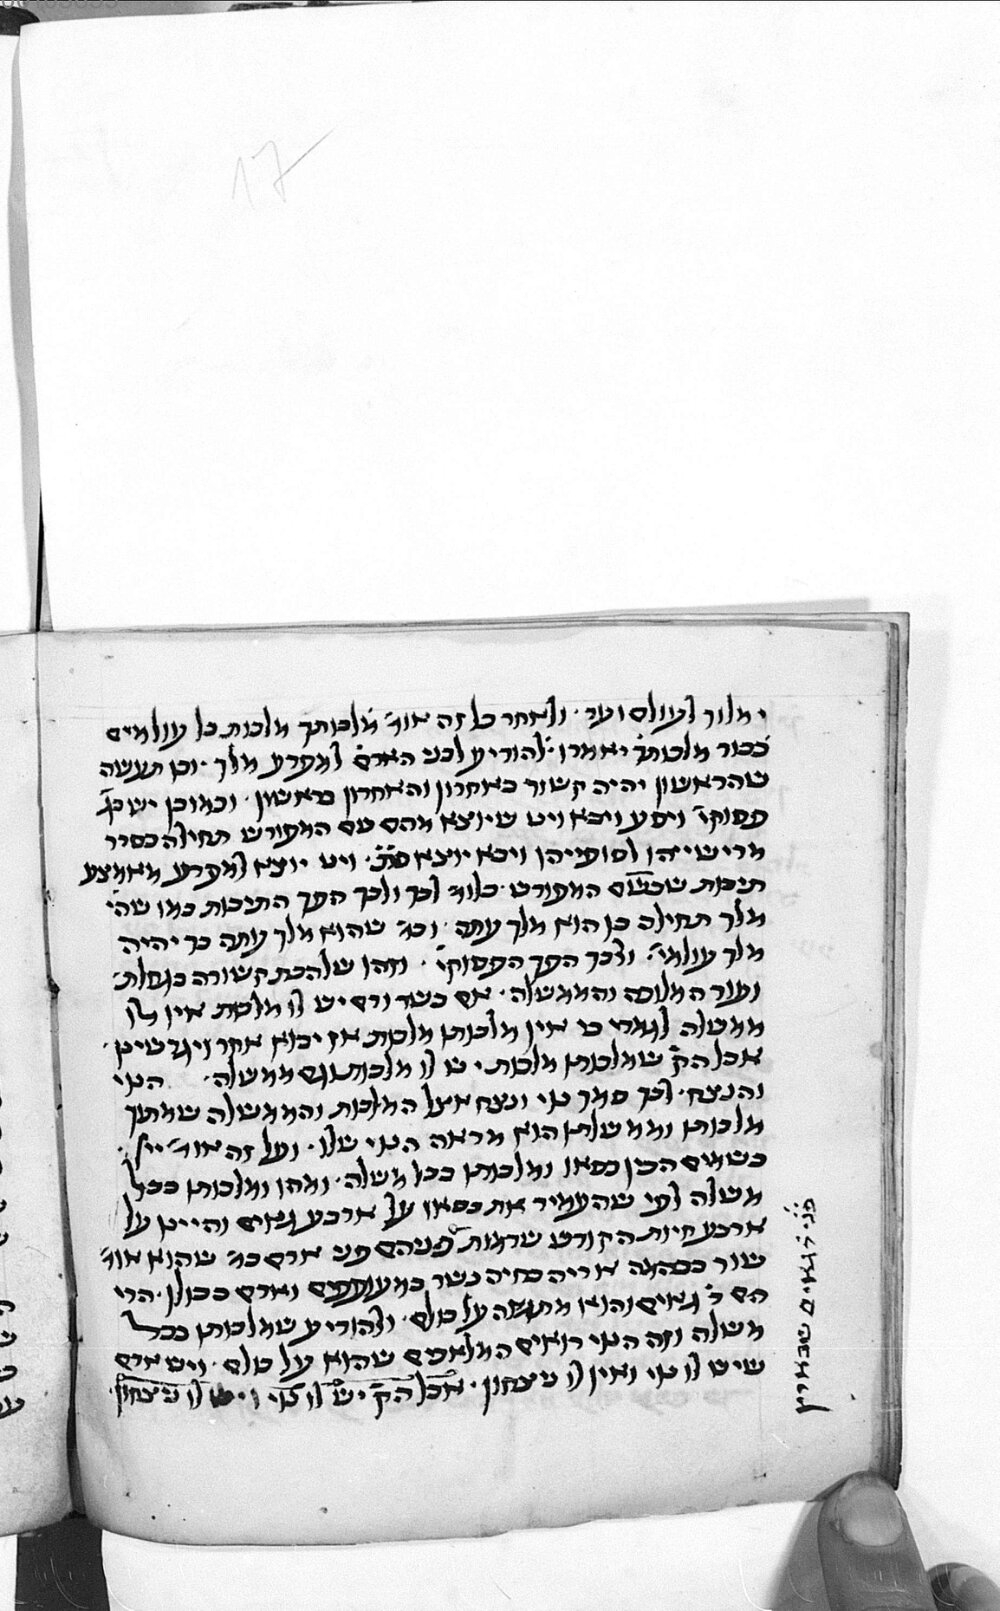 17
ימלוך לעולם ועד · ולאחר כל זה אומ' מלכותך מלכות כל עולמים
כבוד מלכותך יאמרו · להודיע לבני האדם למפרע מלך · וכן תעשה
שהראשון יהיה קשור באחרון והאחרון בראשון · וכמו כן יש בג'
פסוקי' ויסע ויבא ויט שיוצא מהם שם המפורש תחילה כסדר
מרישיהן לסופיהן ויבא יוצא · ויט יוצא למפרע מאמצע
תיבות שבשם המפורש · כלומ' לכך ולכך הפך התיבות כמו שהי'
מלך תחילה כן הוא מלך עתה · וכמ' שהוא מלך עתה כך יהיה
מלך עולמי' · לכך הפך הפסוקי' · וזהו שלהבת קשורה בגחלת
ועוד המלוכה והממשלה · אם בשר ודם יש לו מלכות אין לו
ממשלה לגמרי כי אין מלכותו מלכות אז יבוא אחר ויגרשינו ·
אבל הק' שמלכותו מלכות · יש לו מלכות וגם ממשלה · הנוי
והנצח · לכך סמך נוי ונצח אצל המלכות והממשלה שמתוך
מלכותו וממשלתו הוא מראה הנוי שלו · ועל זה אומ' ייי
בשמים הכין כסאו ומלכותו בכל משלה · ומהו ומלכותו בכל
משלה לפי שהעמיד את כסאו על ארבע גאים והיינו על
ארבע חיות הקודש שדמות פניהם פני אדם כמ' שהוא אומ'
שור בבהמה אריה בחיה נשר בעופות ואדם בכולן · הרי
הם ד' גאים והוא מתגאה על כולם · ולהודיע שמלכותו בכל
משלה וזה הנוי רואים המלאכים שהוא על כולם · ויש אדם
שיש לו נוי ואין לו ניצחון · אבל הק' יש לו נוי ויש לו ניצחון ·
פני ד' גאים שבארץ